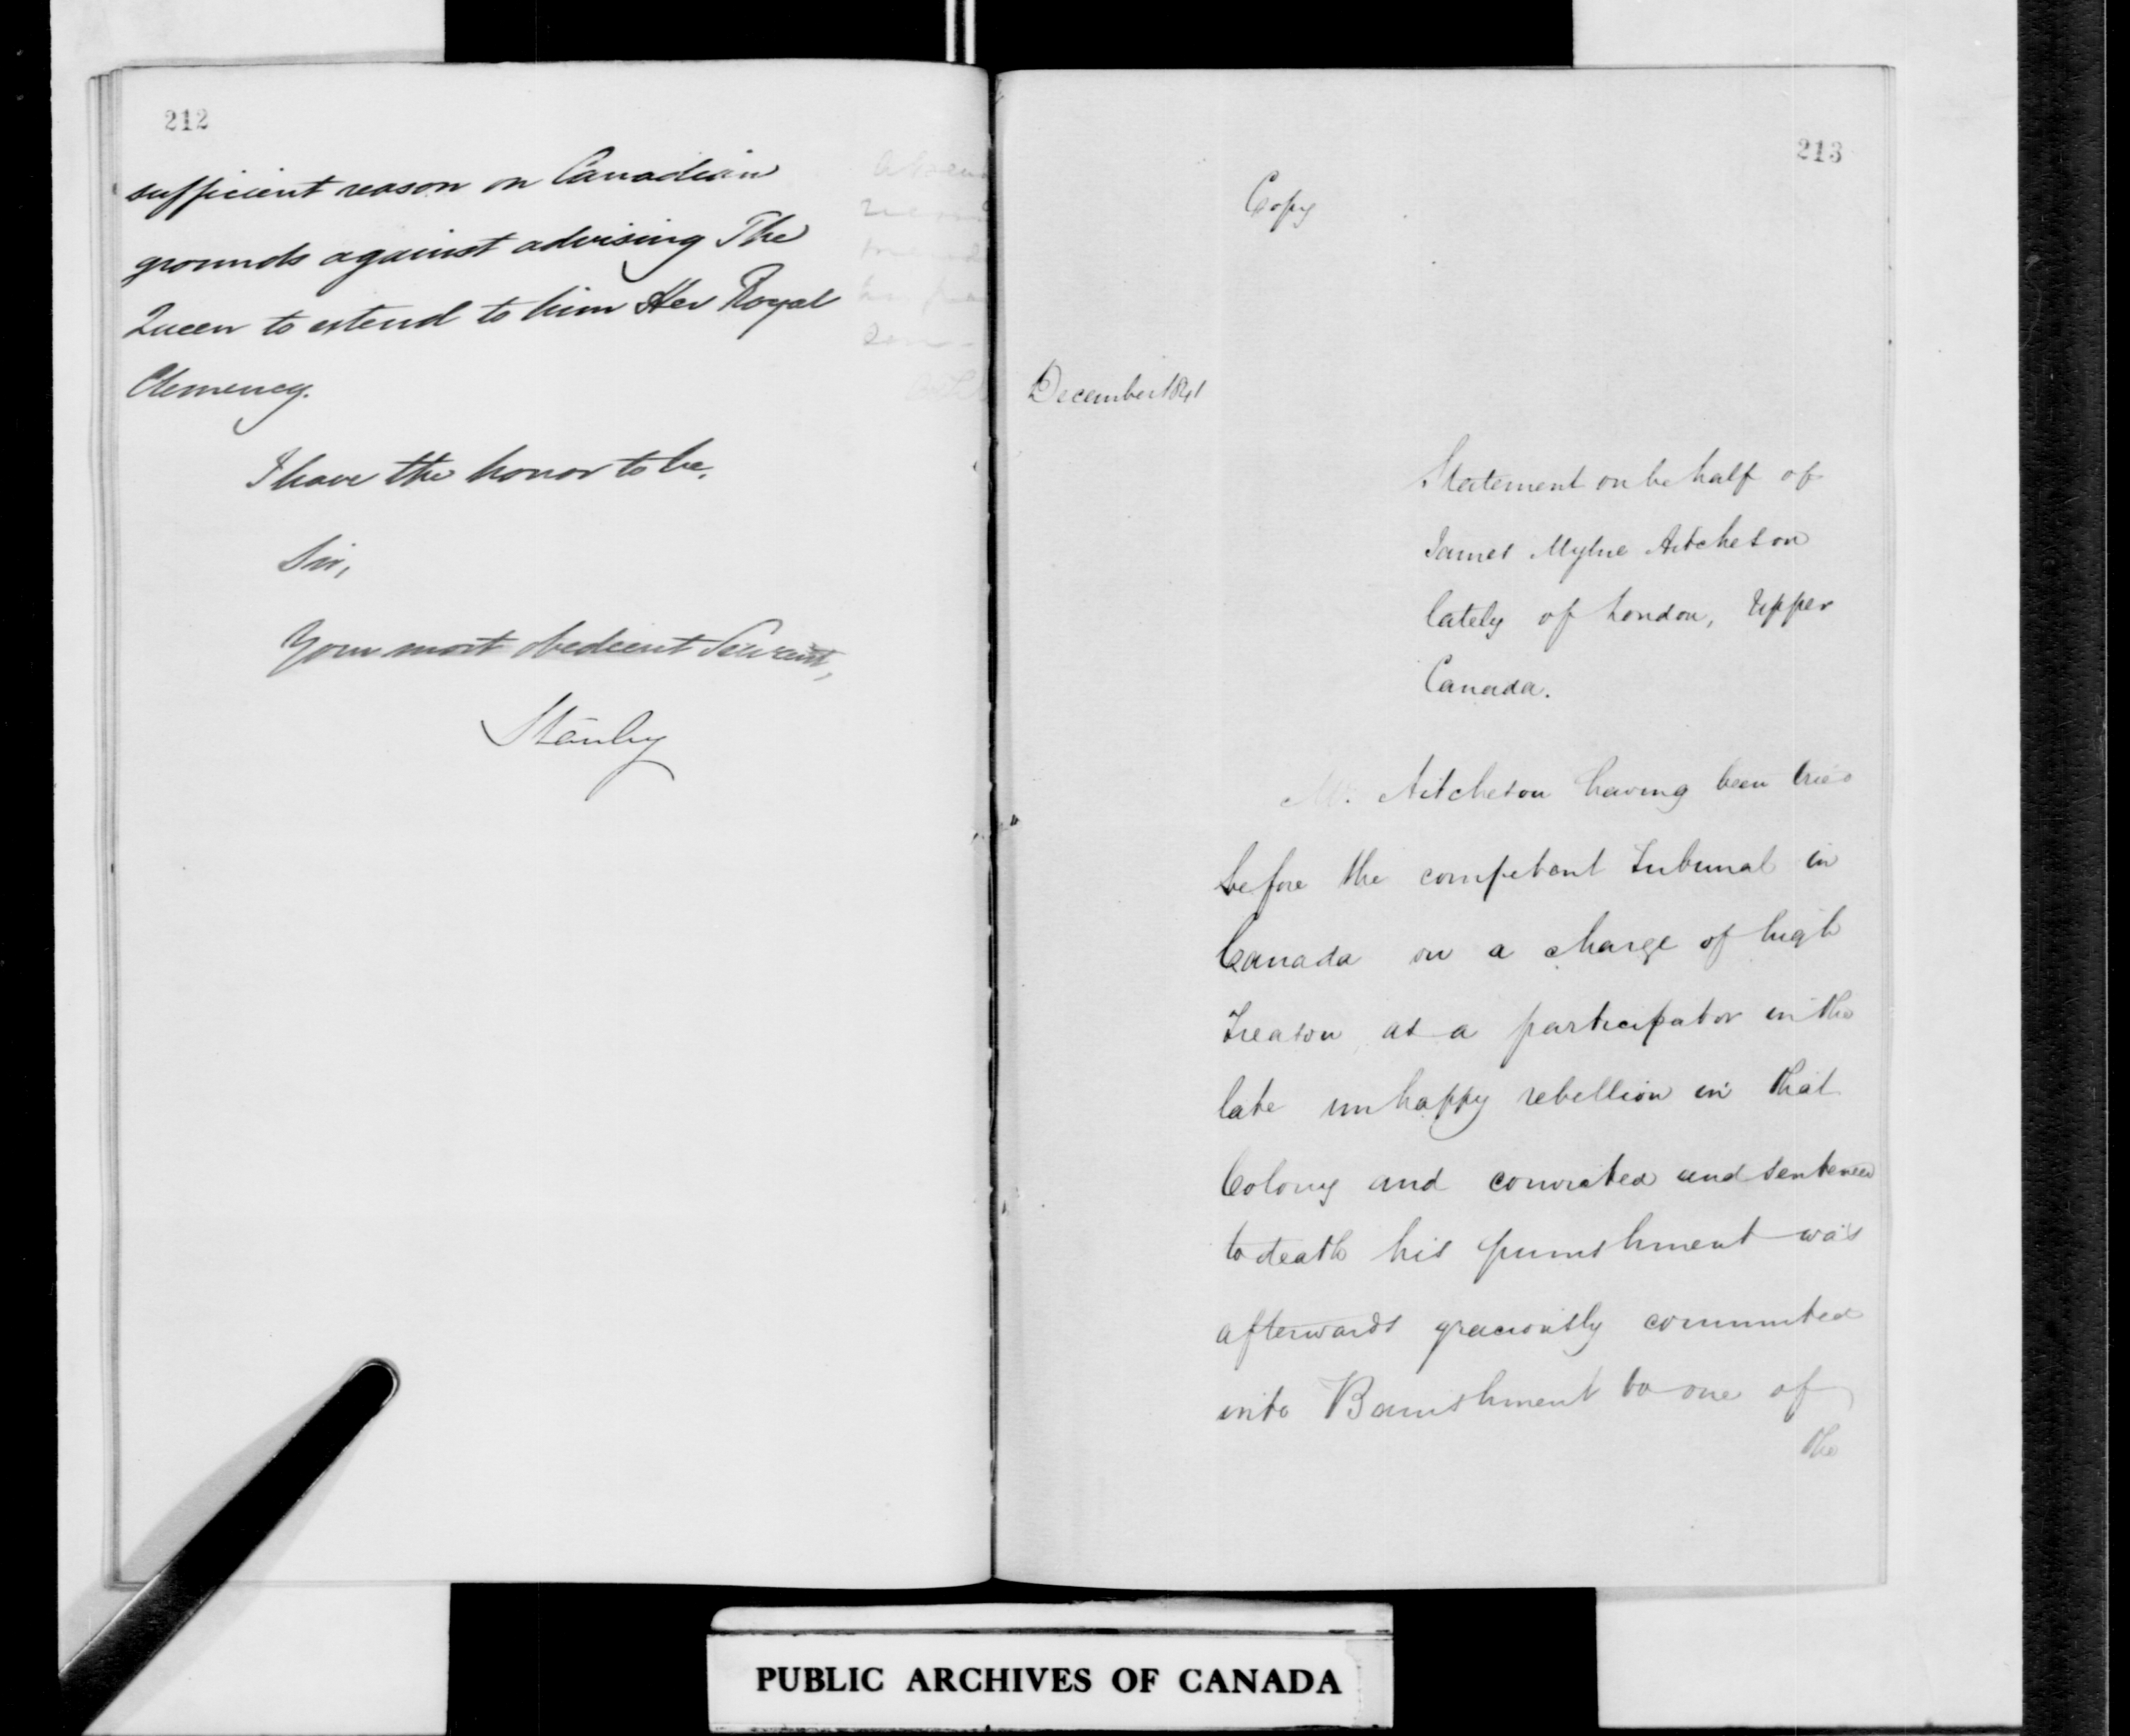 212
sufficient reason on Canadian
grounds against advising The
Queen to extend to him Her Royal
Clemency.
I have the honor to be,
Sir,
Your most obedient Servant,
Stanley
213
Copy
December 1841
Statement on behalf of
James Mylne Aitcheson
lately of London, Upper
Canada.
Mr. Aitcheson having been tried
before the competent Tribunal in
Canada on a charge of high
Treason as a participator in the
late unhappy rebellion in that
Colony and convicted and sentenced
to death his punishment was
afterwards graciously commuted
into Banishment to one of
the
PUBLIC ARCHIVES OF CANADA